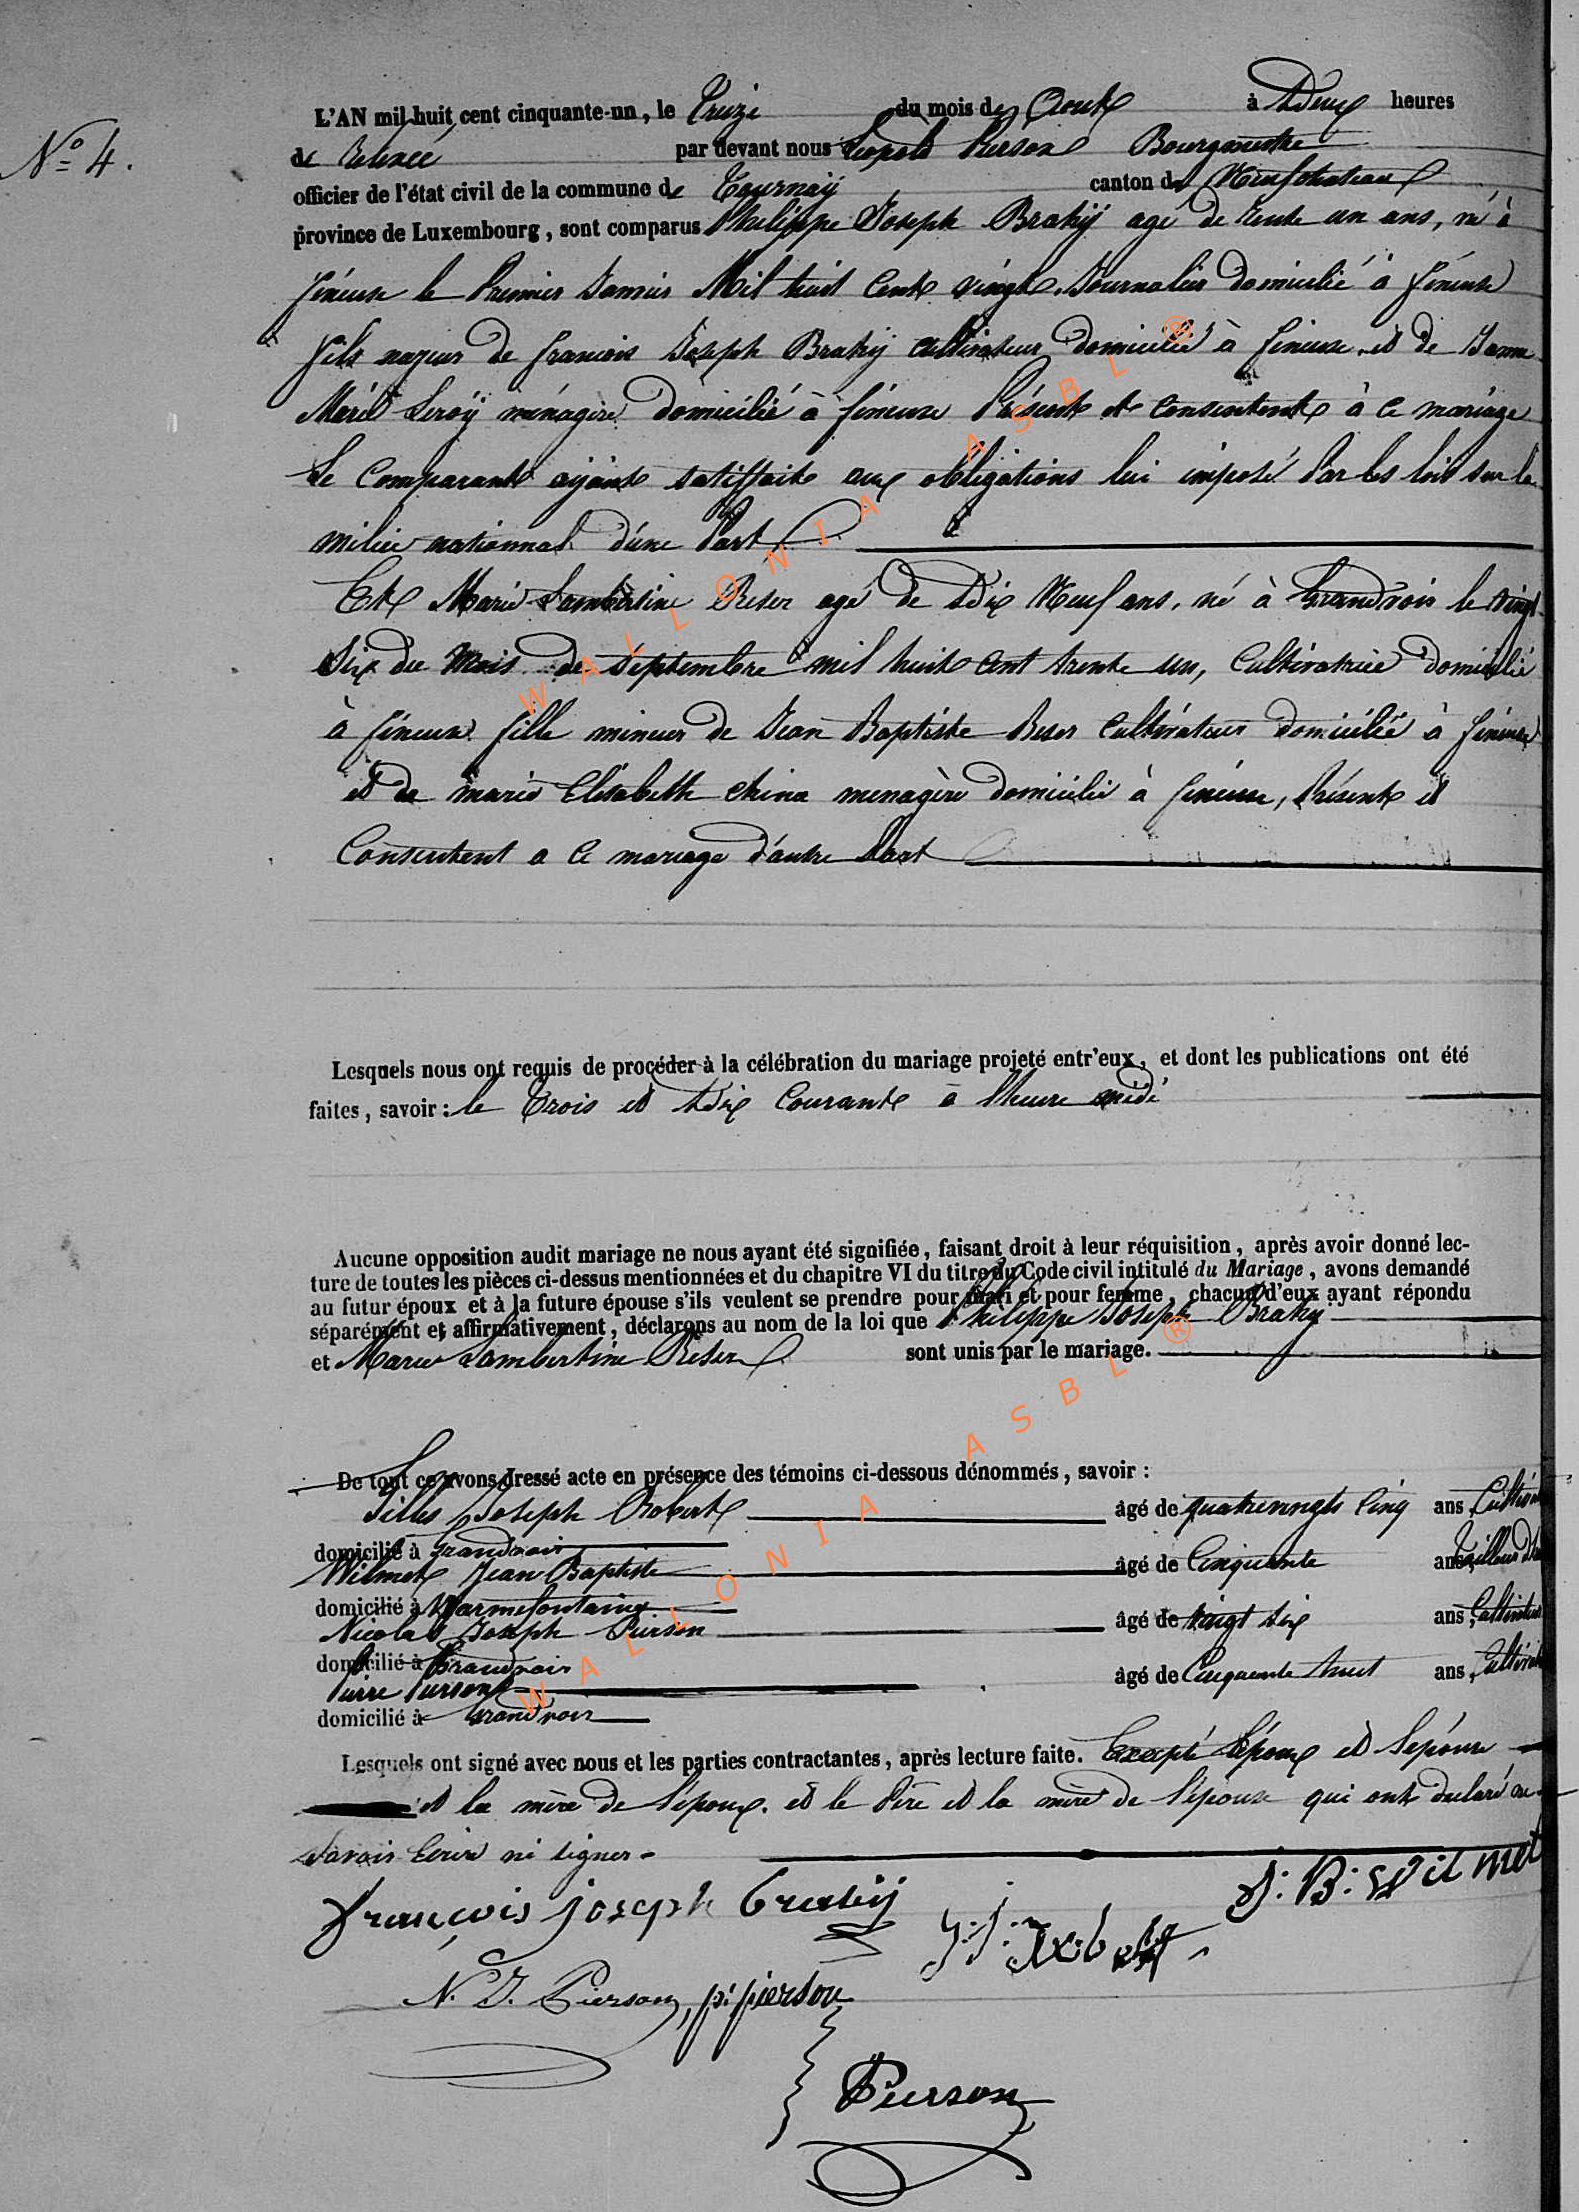 N° 4.
L'AN mil huit cent cinquante-un, le Treize du mois de Aout à Deux heures
de relevée par devant nous Léopold Pierson Bourgmestre
officier de l'état civil de la commune de Tournaÿ canton de Neufchateau
province de Luxembourg, sont comparus Philippe Joseph Brakÿ agé de trente un ans, né à
fineuse le Premier Janvier Mil huit Cent vingt, Journalier domicilié à fineuse
fils majeur de francois Joseph Brakÿ cultivateur domicilié à fineuse, et de Jeanne
Marie Leroÿ ménagère domicilié à fineuse Présent et consentent à ce mariage
Le Comparant ayant satisffait aux obligations lui imposé Par les lois sur la
milice nationnal d'une Part
Et Marie Lambertine Reser agé de Dix Neuf ans, né à Grandvoir le vingt
Six du Mois de Septembre mil huit cent trente un, Cultivatrice domicilié
à fineuse fille mineur de Jean Baptiste Reser Cultivateur domicilié à finéuse
et de marie Elisabeth China menagère domicilié à finéuse, Présent et
Consentent a ce mariage d'autre Part
Lesquels nous ont requis de procéder à la célébration du mariage projeté entr'eux, et dont les publications ont été
faites, savoir : le Trois et Dix Courant à l'heure midi
Aucune opposition audit mariage ne nous ayant été signifiée, faisant droit à leur réquisition, après avoir donné lec-
ture de toutes les pièces ci-dessus mentionnées et du chapitre VI du titre du Code civil intitulé du Mariage, avons demandé
au futur époux et à la future épouse s'ils veulent se prendre pour mari et pour femme, chacun d'eux ayant répondu
séparément et affirmativement, déclarons au nom de la loi que Philippe Joseph Brakÿ
et Marie Lambertine Reser sont unis par le mariage.
De tout ce avons dressé acte en présence des témoins ci-dessous dénommés, savoir :
Gilles Joseph Robert âgé de quatrevingts Cinq ans, Cultivat
domicilié à Grandvoir
Wilmet Jean Baptiste âgé de Cinquante ans, Tailleur
domicilié à Warmefontaine
Nicolas Joseph Pierson âgé de vingt six ans, Cultivateur
domicilié à Grandvoir
Pierre Pierson âgé de Cinquante huit ans, Cultivat
domicilié à Grandvoir
Lesquels ont signé avec nous et les parties contractantes, après lecture faite. Excepté l'époux et l'épouse
et la mère de l'époux, et le Père et la mère de l'épouse qui ont declaré ne
Savoir Ecrire ni signer
françois joseph brakij
J: B: Wilmet
N. J. Pierson, p: pierson
Pierson
WALLONIA ASBL ®
WALLONIA ASBL ®